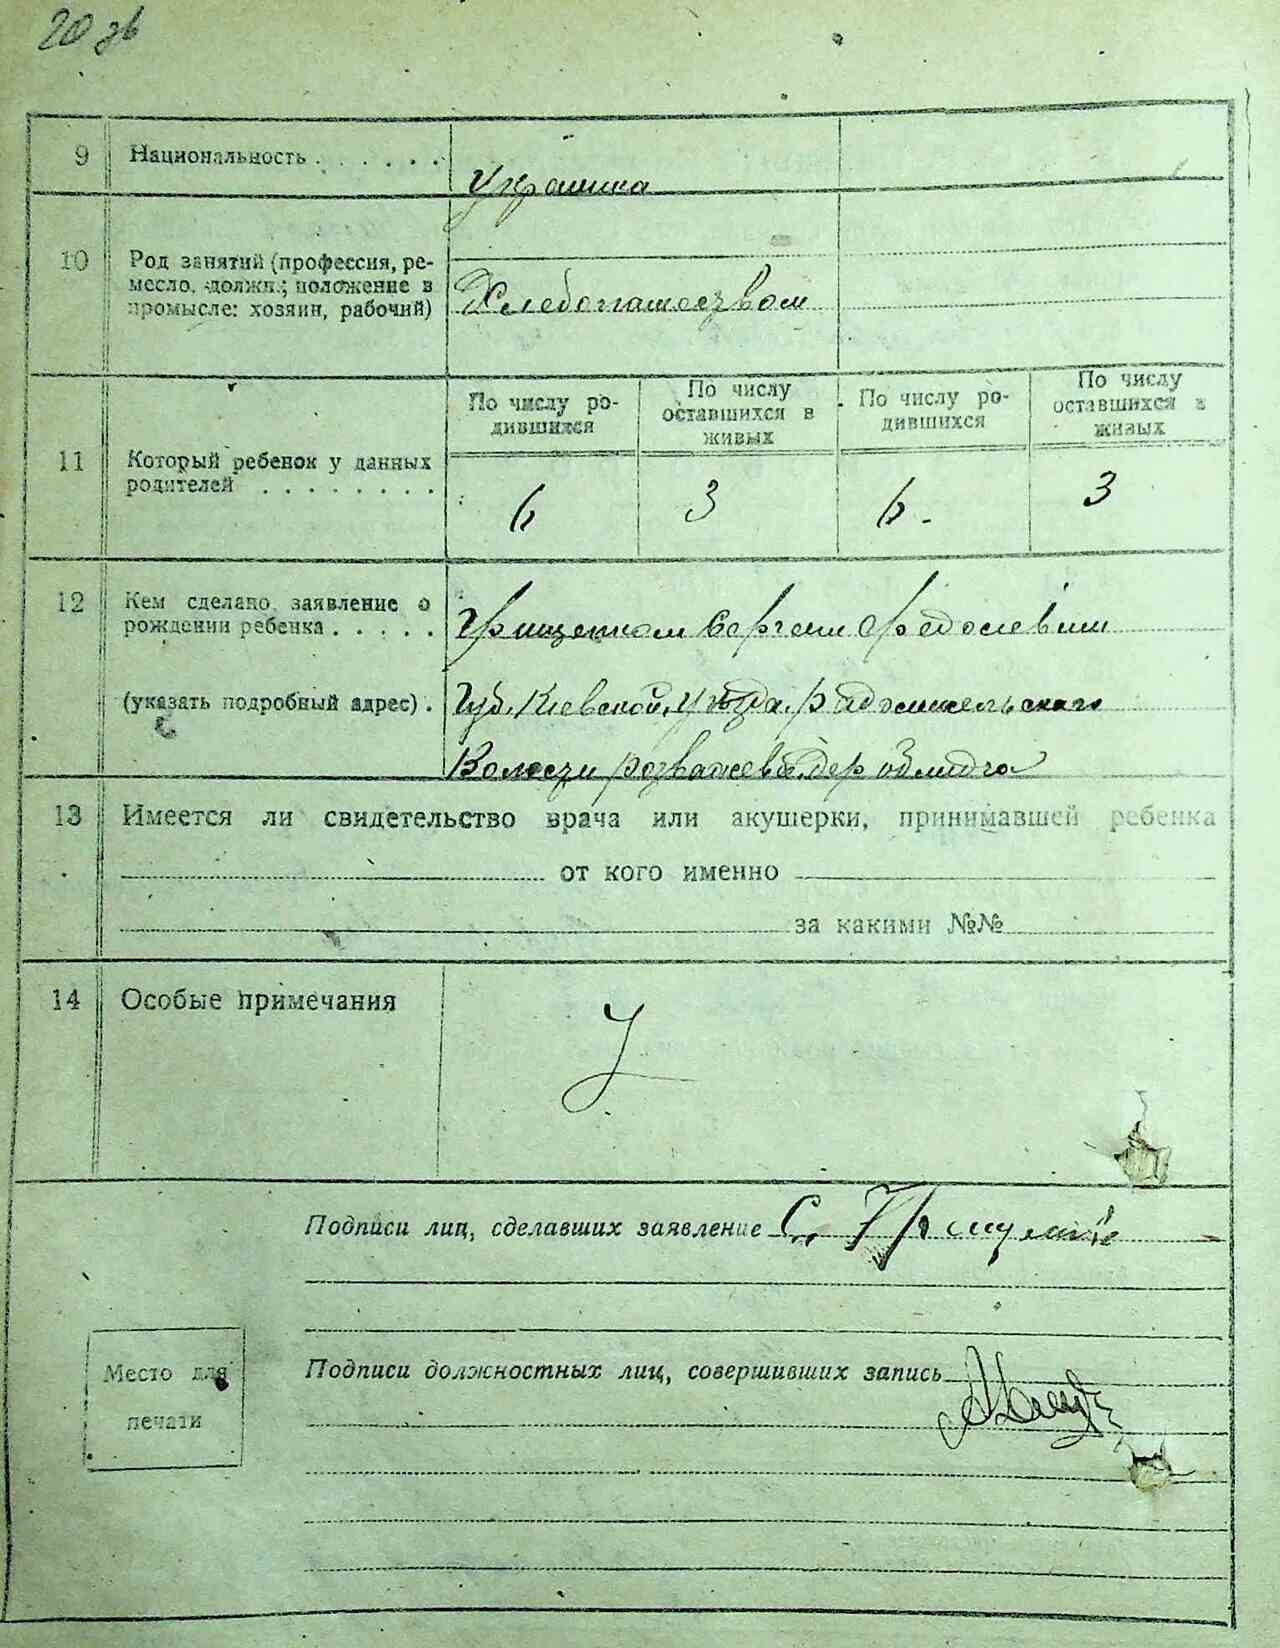 20 зв
9 Национальность . . . . . .
Украинка
10 Род занятий (профессия, ре-
месло, должн.; положение в
промысле: хозяин, рабочий)
Хлебопашеством
По числу ро-
дившихся
По числу
оставшихся в
живых
По числу ро-
дившихся
По числу
оставшихся в
живых
11 Который ребенок у данных
родителей . . . . . . . .
6 3 6. 3
12 Кем сделано заявление о
рождении ребенка . . . . .
Грищенком Сергеем Федосевим
(указать подробный адрес) .
Губ. Киевской, уезда. Радомисельскаго
Волости Розважева, дер
13 Имеется ли свидетельство врача или акушерки, принимавшей ребенка
от кого именно
за какими №№
14 Особые примечания
Подписи лиц, сделавших заявление С. Грищенко
Подписи должностных лиц, совершивших запись
Место для
печати